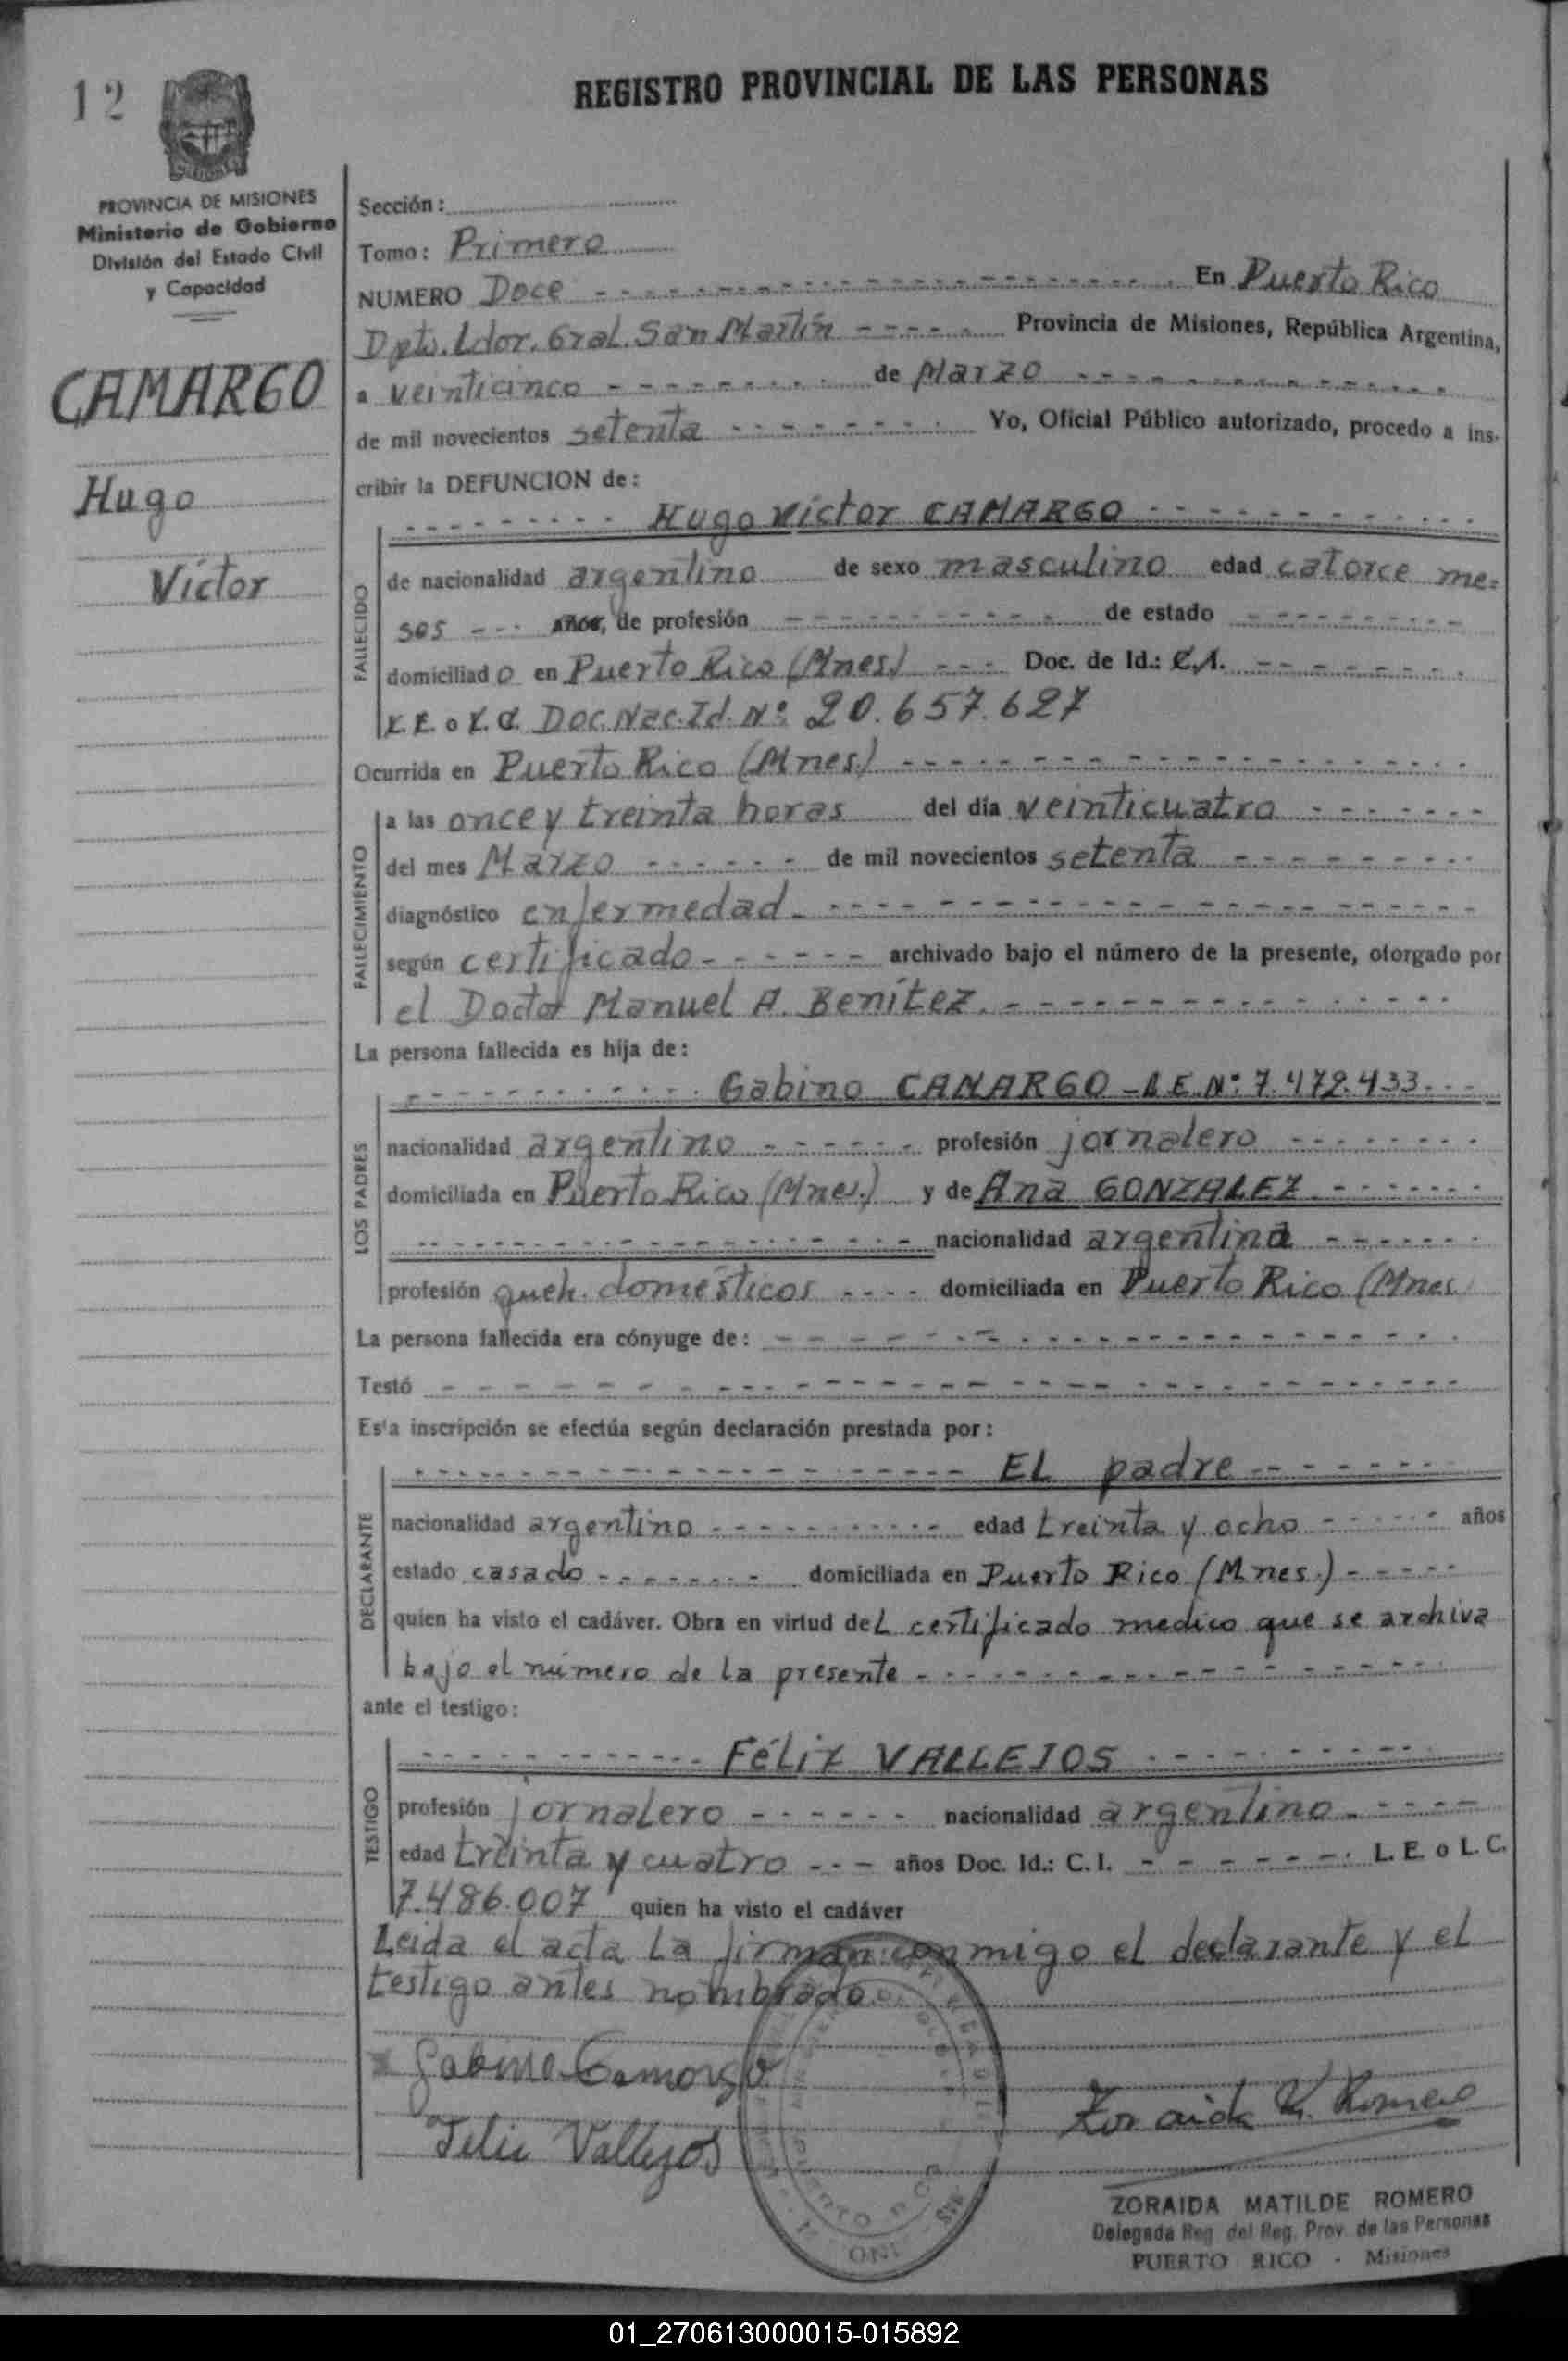 12
REGISTRO PROVINCIAL DE LAS PERSONAS
PROVINCIA DE MISIONES
Ministerio de Gobierno
División del Estado Civil
y Capacidad
CAMARGO
Hugo
Víctor
Sección:
Tomo: Primero
NUMERO Doce En Puerto Rico
Dpto. Ldor. Gral. San Martín Provincia de Misiones, República Argentina,
a veinticinco de Marzo
de mil novecientos setenta Yo, Oficial Público autorizado, procedo a ins-
cribir la DEFUNCION de:
Hugo Víctor CAMARGO
FALLECIDO
de nacionalidad argentino de sexo masculino edad catorce me=
ses años, de profesión de estado
domiciliado en Puerto Rico (Mnes) Doc. de Id.: C.I.
L.E. o L.C. Doc. Nac. Id. Nº 20.657.627
Ocurrida en Puerto Rico (Mnes.)
FALLECIMIENTO
a las once y treinta horas del día veinticuatro
del mes Marzo de mil novecientos setenta
diagnóstico enfermedad
según certificado archivado bajo el número de la presente, otorgado por
el Doctor Manuel A. Benítez.
La persona fallecida es hija de:
Gabino CAMARGO - L.E. Nº: 7.472.433
LOS PADRES
nacionalidad argentino profesión jornalero
domiciliada en Puerto Rico (Mnes.) y de Ana GONZALEZ
nacionalidad argentina
profesión queh. domésticos domiciliada en Puerto Rico (Mnes
La persona fallecida era cónyuge de:
Testó
Esta inscripción se efectúa según declaración prestada por:
EL padre
DECLARANTE
nacionalidad argentino edad treinta y ocho años
estado casado domiciliada en Puerto Rico (Mnes.)
quien ha visto el cadáver. Obra en virtud del certificado medico que se archiva
bajo el número de la presente
ante el testigo:
Félix VALLEJOS
TESTIGO
profesión jornalero nacionalidad argentino
edad treinta y cuatro años Doc. Id.: C. I. L. E. o L. C.
7.486.007 quien ha visto el cadáver
Leida el acta la firman conmigo el declarante y el
testigo antes nombrado
Gabino Camargo
Felix Vallejos
Zoraida M. Romero
ZORAIDA MATILDE ROMERO
Delegada Reg. del Reg. Prov. de las Personas
PUERTO RICO - Misiones
01_270613000015-015892